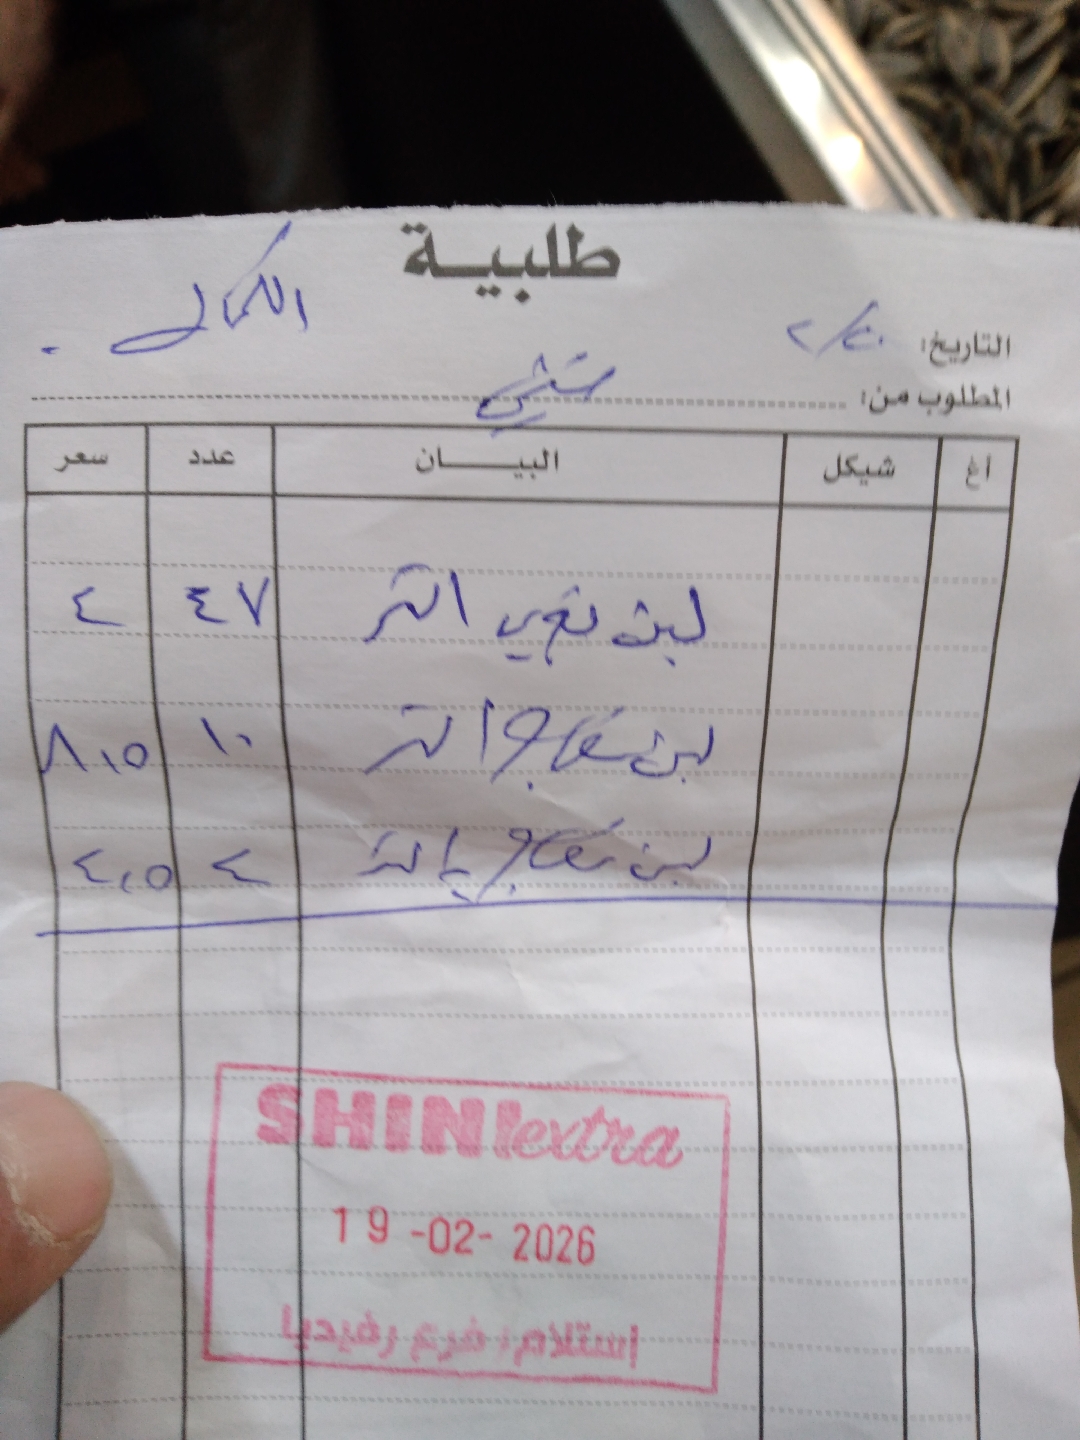 طلبية
الكمال
التاريخ: ٢/٢٠
المطلوب من:
أغ شيكل البيـــان عدد سعر
لبن التر ٤٧ ٤
لبن التر ١٠ ٨,٥
لبن ٤ ٤,٥
SHINI extra
19 -02- 2026
إستلام: فرع رفيديا